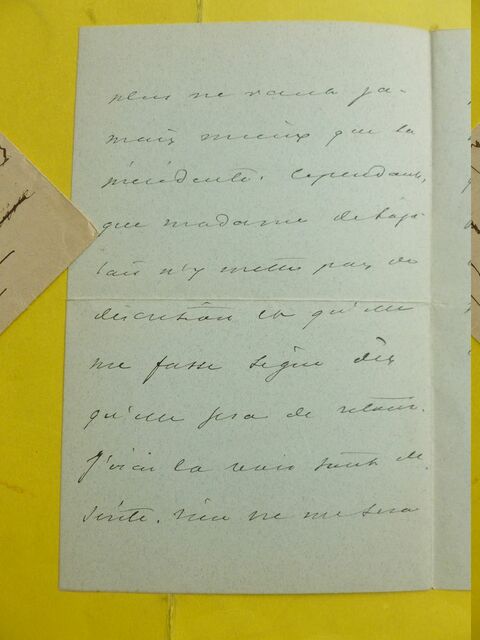 plus ne vaut ja-
mais mieux que la
précédente. Cependant,
que madame de
n'y mette pas de
discrétion et qu'elle
me fasse signe dès
qu'elle sera de retour.
J'irai la voir tout de
suite. Rien ne me sera